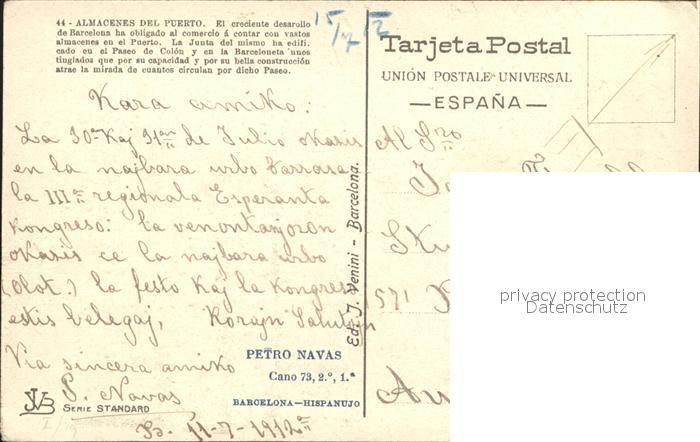 44 - ALMACENES DEL PUERTO. El creciente desarollo
de Barcelona ha obligado al comercio á contar con vastos
almacenes en el Puerto. La Junta del mismo ha edifi.
cado en el Paseo de Colón y en la Barceloneta unos
tinglados que por su capacidad y por su bella construcción
atrae la mirada de cuantos circulan por dicho Paseo.
15/7 12
Tarjeta Postal
UNIÓN POSTALE UNIVERSAL
—ESPAÑA—
Kara amiko:
La 30ª Kaj 31an de Julio okazis
en la najbara urbo Tarrasa
la IIIª regionala Esperanta
Kongreso: la venontanjoron
okazis ce la najbara urbo
(Olot.) la festo Kaj la Kongreso
estis belegaj, Korajn Salutojn
Via sincera amiko
P. Navas
Ba. 11-7-1912
PETRO NAVAS
Cano 73, 2.º, 1.ª
BARCELONA—HISPANUJO
JVB
SERIE STANDARD
Ed. J. Venini - Barcelona.
Al Sro
1571
privacy protection
Datenschutz